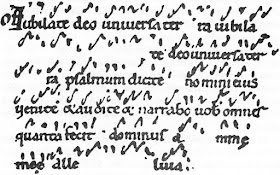 Iubilate deo uniuersa ter ra iubila
te deo uniuersa ter
ra psalmum dicite nomini eius
uenite & audite & narrabo uob omnes
quanta fecit dominus a nime
mee alle luia.